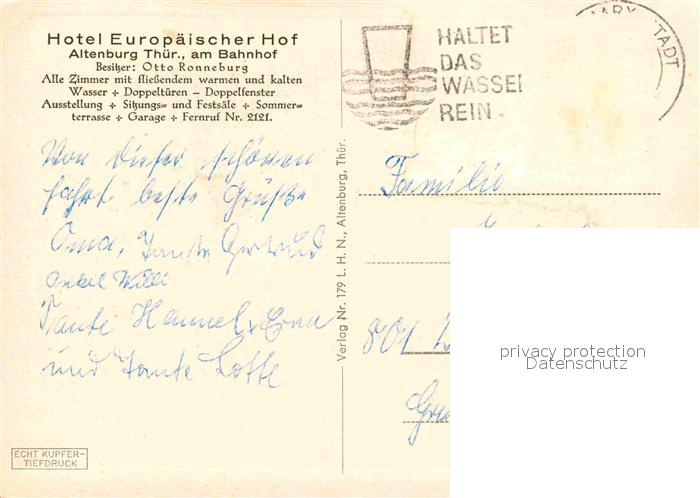 Hotel Europäischer Hof
Altenburg Thür., am Bahnhof
Besitzer: Otto Ronneburg
Alle Zimmer mit fließendem warmen und kalten
Wasser + Doppeltüren – Doppelfenster
Ausstellung + Sitzungs= und Festsäle + Sommer=
terrasse + Garage + Fernruf Nr. 2121.
HALTET
DAS
WASSER
REIN
STADT
Von dieser schönen
Fahrt beste Grüße
Oma, Tante Gertrud
Onkel Willi
Tante Hannel, Erna
und Tante Lotte
Verlag Nr. 179 L. H. N., Altenburg, Thür.
Familie
801
ECHT KUPFER-
TIEFDRUCK
privacy protection
Datenschutz